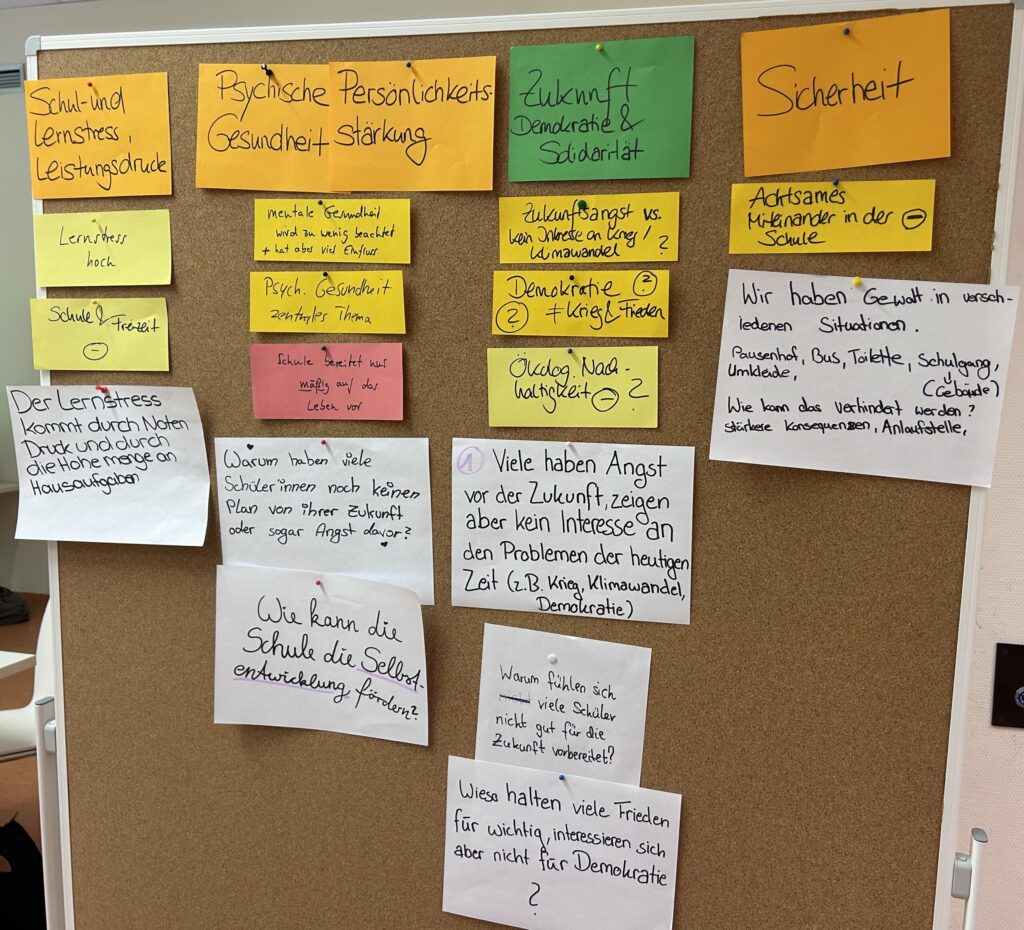 Schul- und
Lernstress,
Leistungsdruck
Lernstress
hoch
Schule & Freizeit
-
Der Lernstress
kommt durch Noten
Druck und durch
die Hohe menge an
Hausaufgaben
Psychische
Gesundheit
Persönlichkeits-
stärkung
mentale Gesundheit
wird zu wenig beachtet
+ hat aber viel Einfluss
Psych. Gesundheit
zentrales Thema
Schule bereitet nur
mäßig auf das
Leben vor
Warum haben viele
Schüler:innen noch keinen
Plan von ihrer Zukunft
oder sogar Angst davor?
Wie kann die
Schule die Selbst-
entwicklung fördern?
Zukunft
Demokratie &
Solidarität
Zukunftsangst vs.
kein Interesse an Krieg /
Klimawandel ?
Demokratie ?
? ≠ Krieg & Frieden
Ökolog. Nach-
haltigkeit - ?
1 Viele haben Angst
vor der Zukunft, zeigen
aber kein Interesse an
den Problemen der heutigen
Zeit (z.B. Krieg, Klimawandel,
Demokratie)
Warum fühlen sich
viele Schüler
nicht gut für die
Zukunft vorbereitet?
Wieso halten viele Frieden
für wichtig, interessieren sich
aber nicht für Demokratie
?
Sicherheit
Achtsames
Miteinander in der -
Schule
Wir haben Gewalt in versch-
iedenen Situationen.
Pausenhof, Bus, Toilette, Schulgang,
Umkleide, (Gebäude)
Wie kann das verhindert werden?
stärkere Konsequenzen, Anlaufstelle,